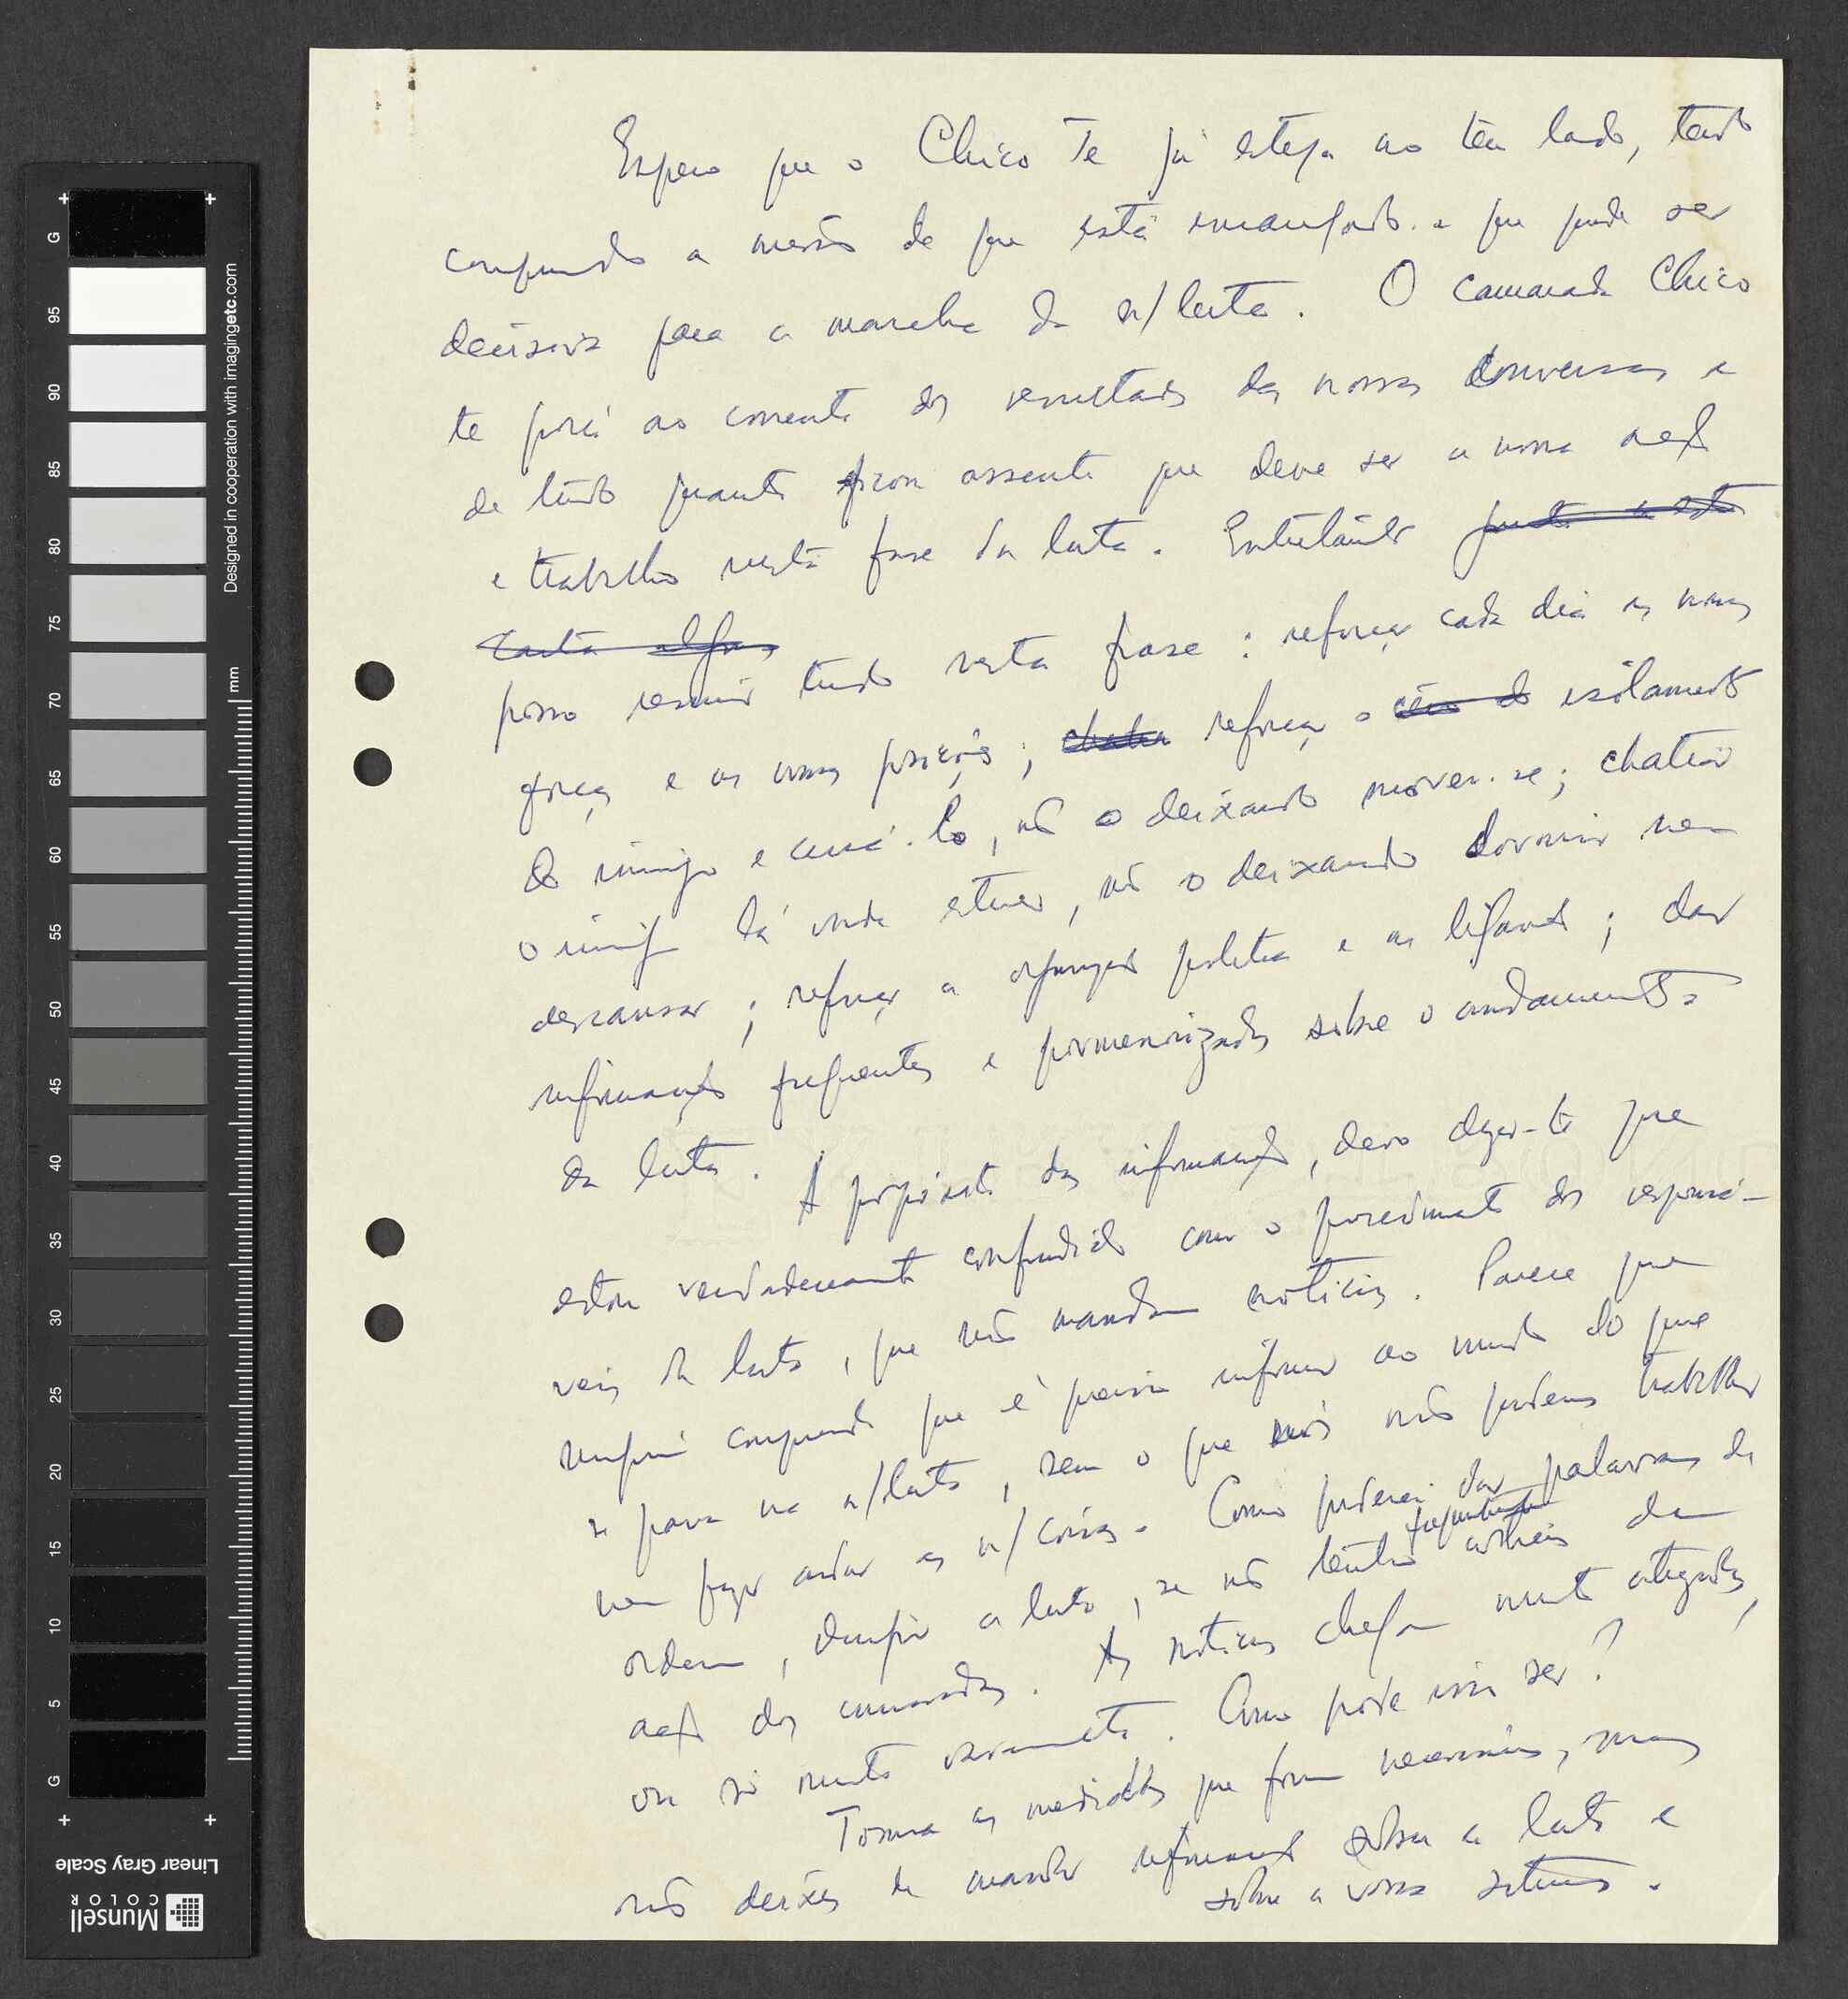 Espero que o Chico Te já esteja ao teu lado, tendo
cumprindo a missão de que está encarregado e que pode ser
decisiva para a marcha da n/ luta. O camarada Chico
te porá ao corrente dos resultados das nossas conversas e
de tudo quanto ficou assente que deve ser a nossa acção
e trabalho nesta fase da luta. Entretanto
posso resumir tudo nesta frase: reforçar cada dia as nossas
forças e as nossas posições; reforçar o isolamento
do inimigo e cercá-lo, não o deixando mover-se; chatear
o inimigo lá onde estiver, não o deixando dormir nem
descansar; reforçar a organização política e as ligações; dar
informações frequentes e pormenorizadas sobre o andamento
da luta. A propósito das informações, devo dizer-te que
estou verdadeiramente confundido com o procedimento dos responsá-
veis da luta, que não mandam notícias. Parece que
ninguém compreende que é preciso informar ao mundo do que
se passa na n/ luta, sem o que nós não podemos trabalhar
nem fazer andar as n/ coisas. Como poderei dar palavras de
ordem, dirigir a luta, se não tenho notícias da
acção dos camaradas. As notícias chegam muito atrazadas,
ou só muito raramente. Como pode isso ser?
Toma as medidas que forem necessárias, mas
não deixes de mandar informações sobre a luta e
sobre a vossa situação.